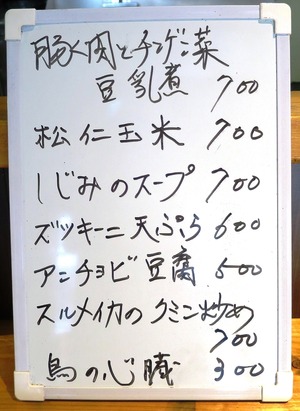 豚肉とチンゲン菜
豆乳煮 700
松仁玉米 700
しじみのスープ 700
ズッキーニ天ぷら 600
アンチョビ豆腐 500
スルメイカのクミン炒め
700
鳥の心臓 300